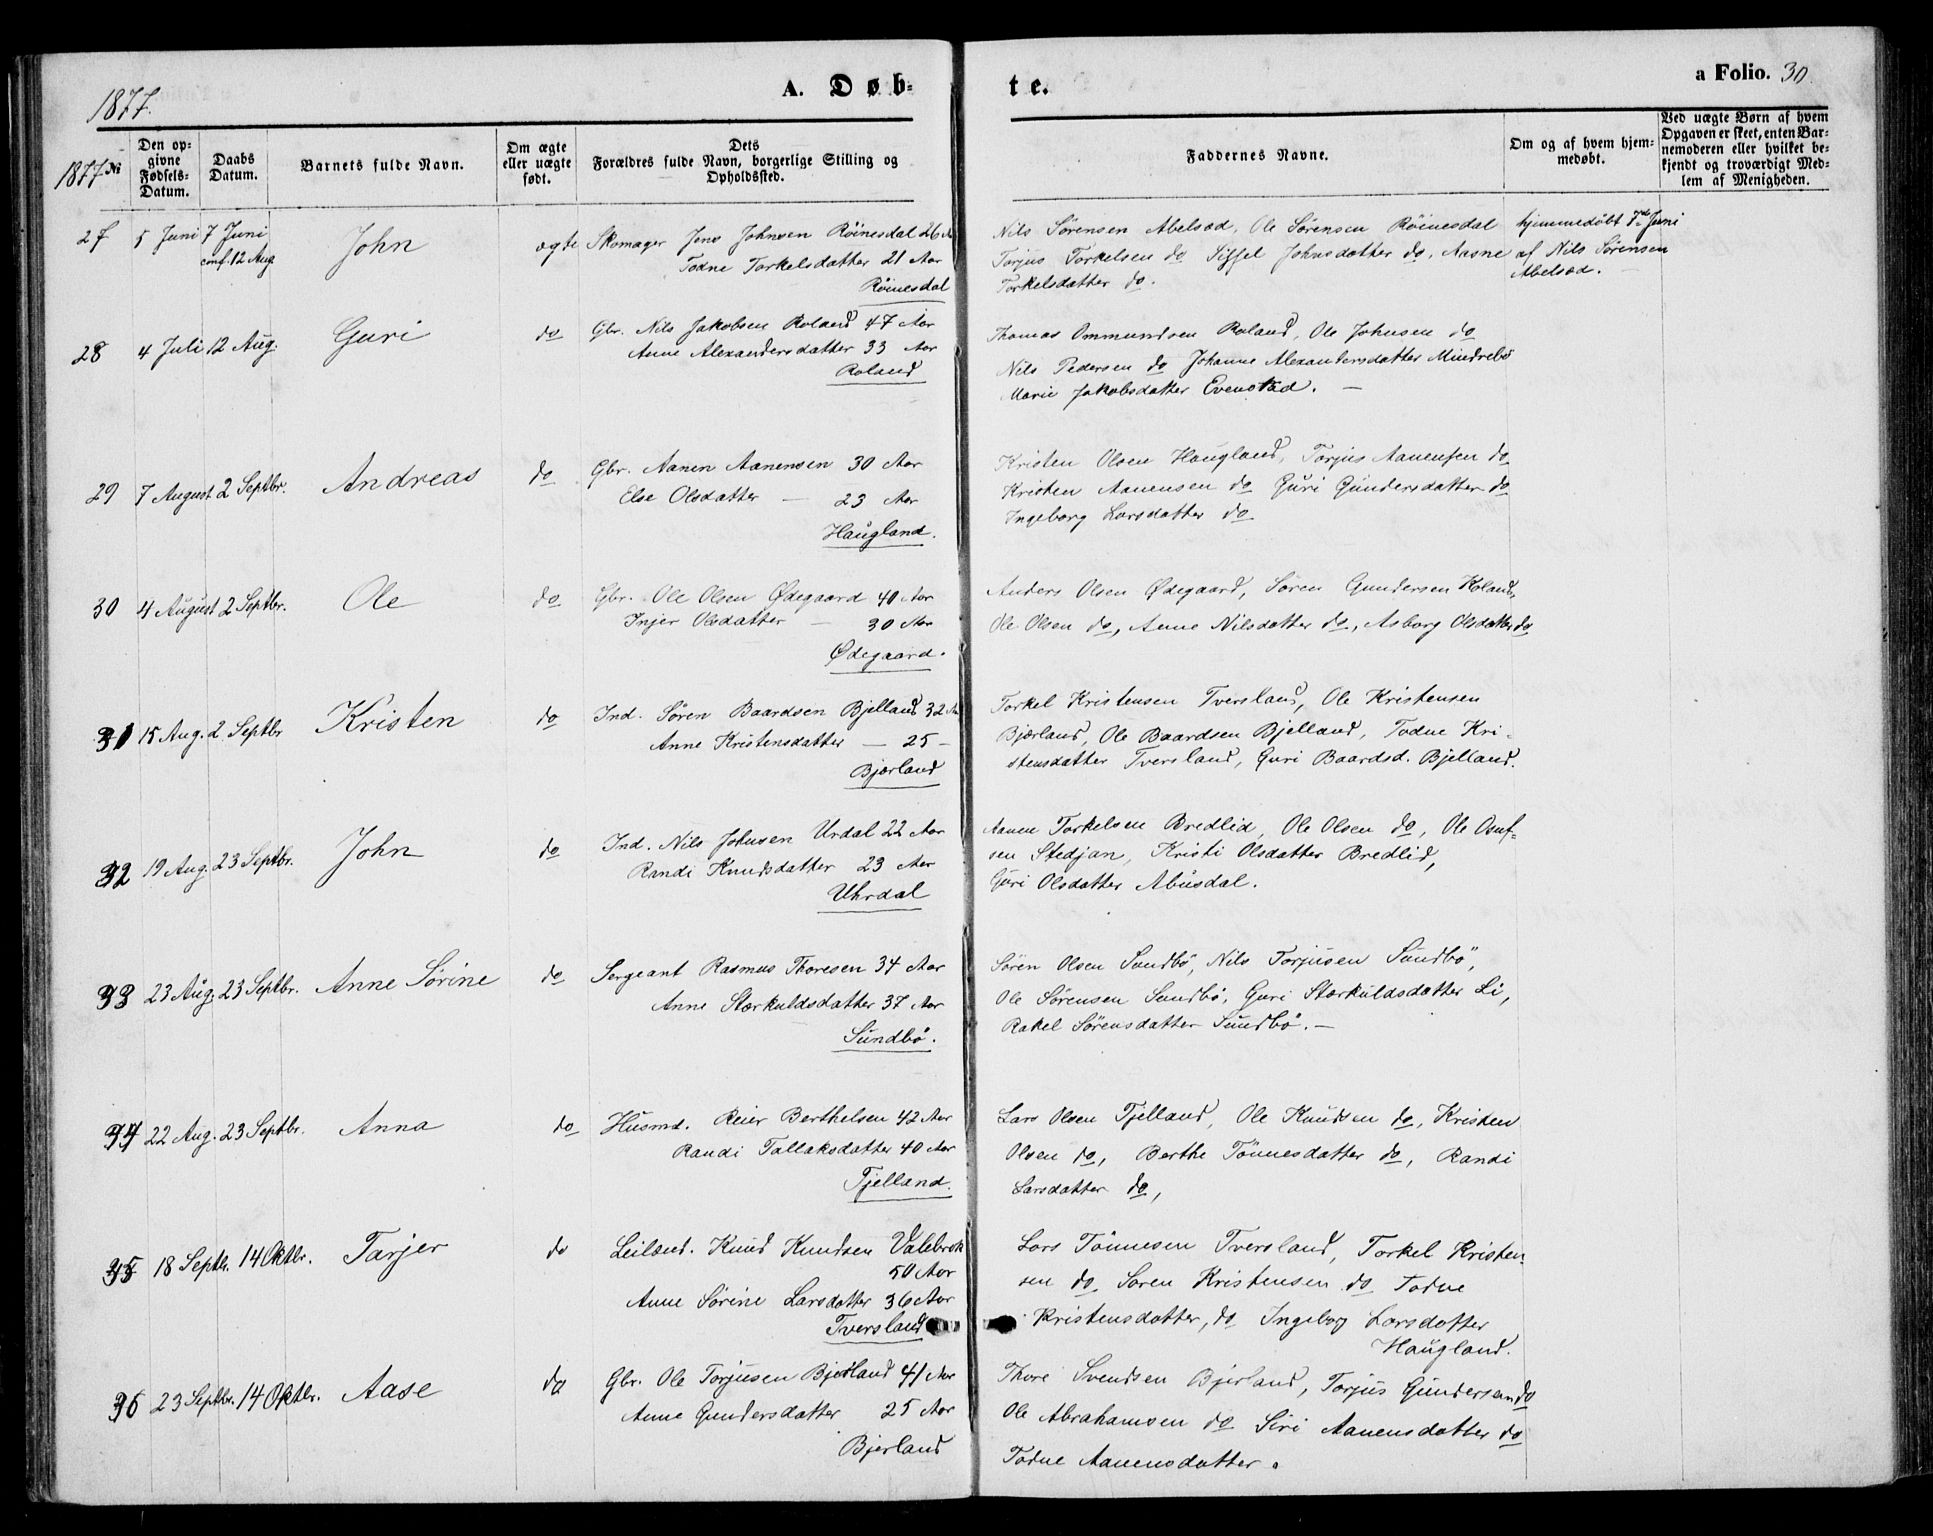 1877.
A. Døb-
te.
a Folio. 30.
1877 No
Den op-
givne
Fødsels-
Datum.
Daabs
Datum.
Barnets fulde Navn.
Om ægte
eller uægte
født.
Dets
Forældres fulde Navn, borgerlige Stilling og
Opholdssted.
Faddernes Navne.
Om og af hvem hjem-
medøbt.
Ved uægte Børn af hvem
Opgaven er skeet, enten Bar-
nemoderen eller hvilket be-
kjendt og troværdigt Med-
lem af Menigheden.
27 5 Juni 7 Juni
conf. 12 Aug
John
ægte
Skomager Jens Johnsen Röinesdal 26 A
Todne Torkelsdatter 21 Aar
Röinesdal
Nils Sörensen Abelsæd, Ole Sörensen Röinesdal
Torjus Torkelsen do Siffel Johnsdatter do, Aasne
Torkelsdatter do.
hjemmedöbt 7de Juni
af Nils Sörensen
Abelsæd. —
28 4 Juli 12 Aug.
Guri
do
Gbr. Nils Jakobsen Roland 47 Aar
Anne Alexandersdatter 33 Aar
Roland
Thomas Ommundsen Roland, Ole Johnsen do
Nils Pedersen do Johanne Alexandersdatter Mindrebö
Marie Jakobsdatter Evenstad. —
29 7 August 2 Septbr.
Andreas
do
Gbr. Aanen Aanensen 30 Aar
Else Olsdatter — 23 Aar
Haugland.
Kristen Olsen Haugland, Torjus Aanensen do
Kristen Aanensen do Guri Gundersdatter do
Ingeborg Larsdatter do
30 4 August 2 Septbr.
Ole
do
Gbr. Ole Olsen Ødegaard 40 Aar
Injer Olsdatter — 30 Aar
Ødegaard.
Anders Olsen Ødegaard, Sören Gundersen Holand,
Ole Olsen do, Anne Nilsdatter do, Asborg Olsdatter do
31 15 Aug. 2 Septbr
Kristen
do
Ind. Sören Baardsen Bjelland 32 A
Anne Kristensdatter — 25 —
Bjærland
Torkel Kristensen Tversland, Ole Kristensen
Bjærland, Ole Baardsen Bjelland, Todne Kri-
stensdatter Tversland, Guri Baardsd. Bjelland.
32 19 Aug. 23 Septbr.
John
do
Ind. Nils Johnsen Urdal 22 Aar
Randi Knudsdatter 23 Aar
Uhrdal
Aanen Torkelsen Bredlid, Ole Olsen do, Ole Osuf-
sen Stedjan, Kristi Olsdatter Bredlid,
Guri Olsdatter Abusdal.
33 23 Aug. 23 Septbr.
Anne Sörine
do
Sergeant Rasmus Thoresen 34 Aar
Anne Stærkuldsdatter 37 Aar
Sundbö.
Sören Olsen Sundbö, Nils Torjusen Sundbö,
Ole Sörensen Sundbö, Guri Stærkuldsdatter Li,
Rakel Sörensdatter Sundbö. —
34 22 Aug. 23 Septbr.
Anna
do
Husmd. Reier Berthelsen 42 Aar
Randi Tallaksdatter 40 Aar
Fjelland.
Lars Olsen Fjelland, Ole Knudsen do, Kristen
Olsen do, Berthe Tönnesdatter do, Randi
Larsdatter do,
35 18 Septbr. 14 Oktbr.
Tarjer
do
Leilænd. Knud Knudsen Valebrok
50 Aar
Anne Sörine Larsdatter 36 Aar
Tversland
Lars Tönnesen Tversland, Torkel Kristen-
sen do Soren Kristensen do Todne
Kristensdatter, do Ingeborg Larsdatter
Haugland.
36 23 Septbr. 14 Oktbr.
Aase
do
Gbr. Ole Torjusen Bjerland 41 Aar
Anne Gundersdatter 25 Aar
Bjerland
Thore Svendsen Bjerland, Torjus Gundersen do
Ole Abrahamsen do Siri Aanensdatter do
Todne Aanensdatter.